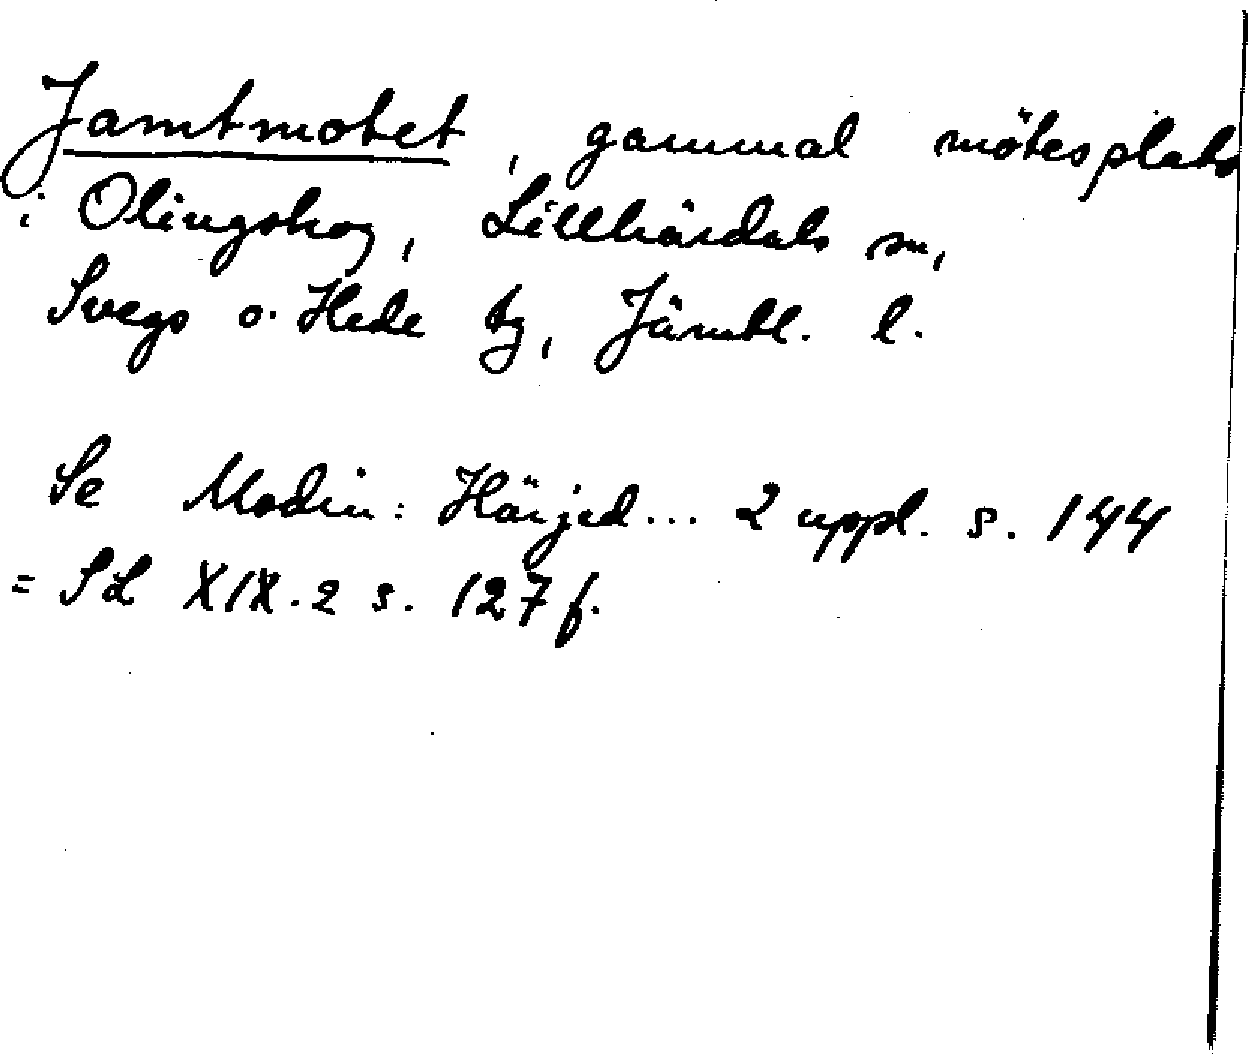 Jamtmotet, gammal mötesplats
i Olingskog, Lillhärdals sn,
Svegs o. Hede tg, Jämtl. l.
Se Modin: Härjed... 2 uppl. s. 144
= SL XIX.2 s. 127 f.